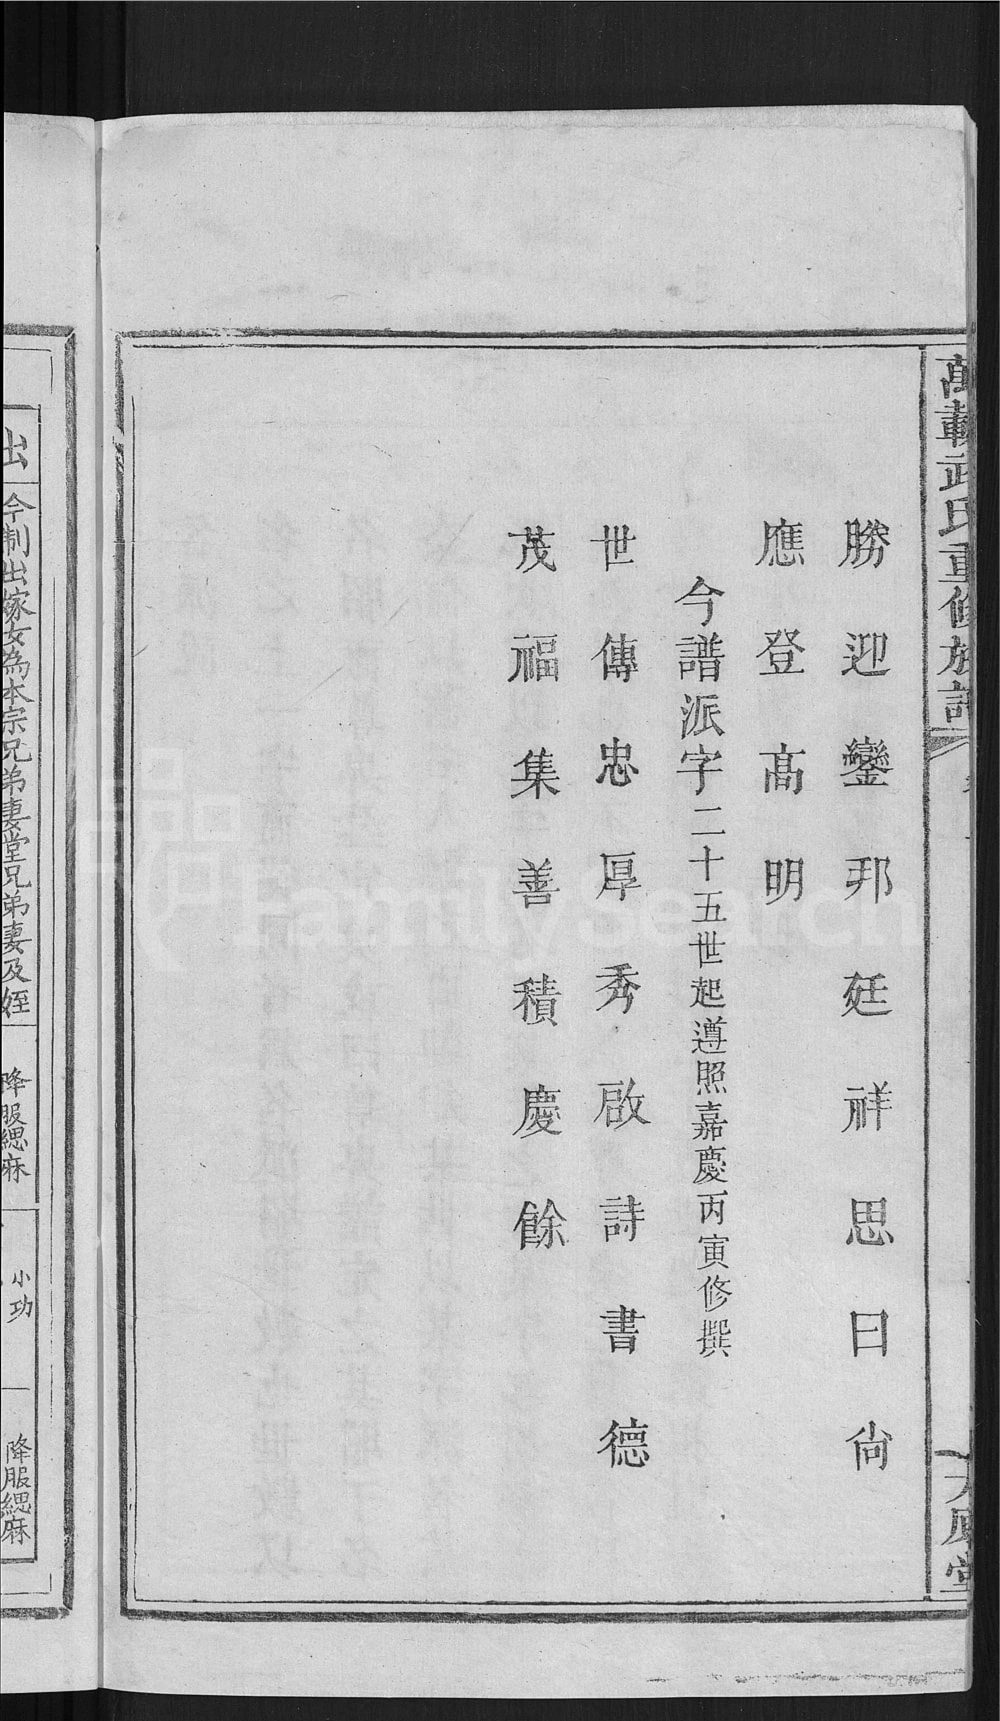 萬載武氏重修族譜
勝迎鑾邦廷祥思曰尙
應登高明
今譜派字二十五世起遵照嘉慶丙寅修撰
世傳忠厚秀啟詩書德
茂福集善積慶餘
出
今制出嫁女為本宗兄弟妻堂兄弟妻及姪
降服緦麻
小功
降服緦麻